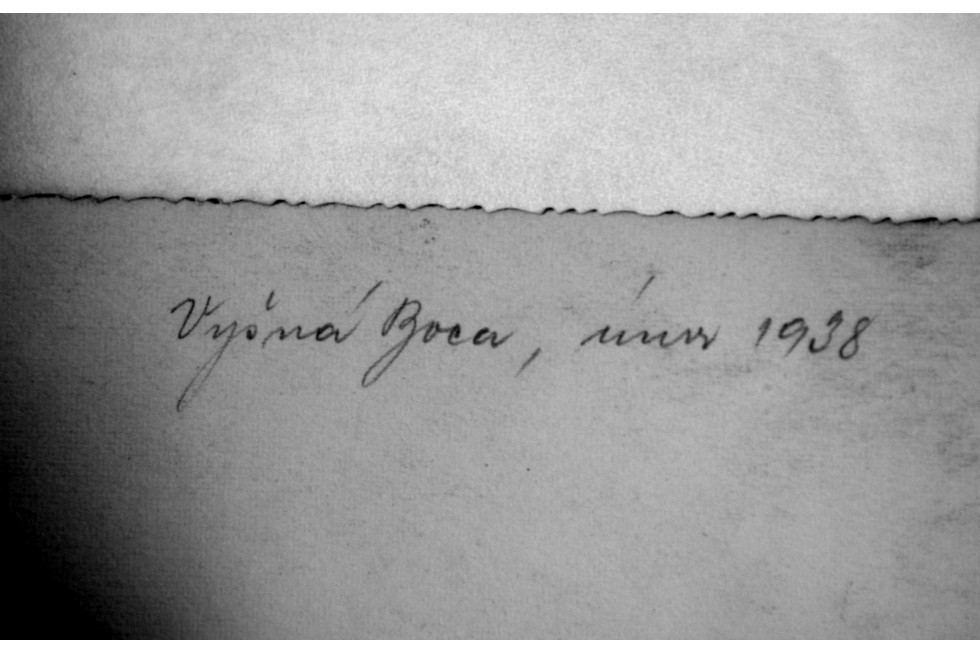 Vyšná Boca, únor 1938